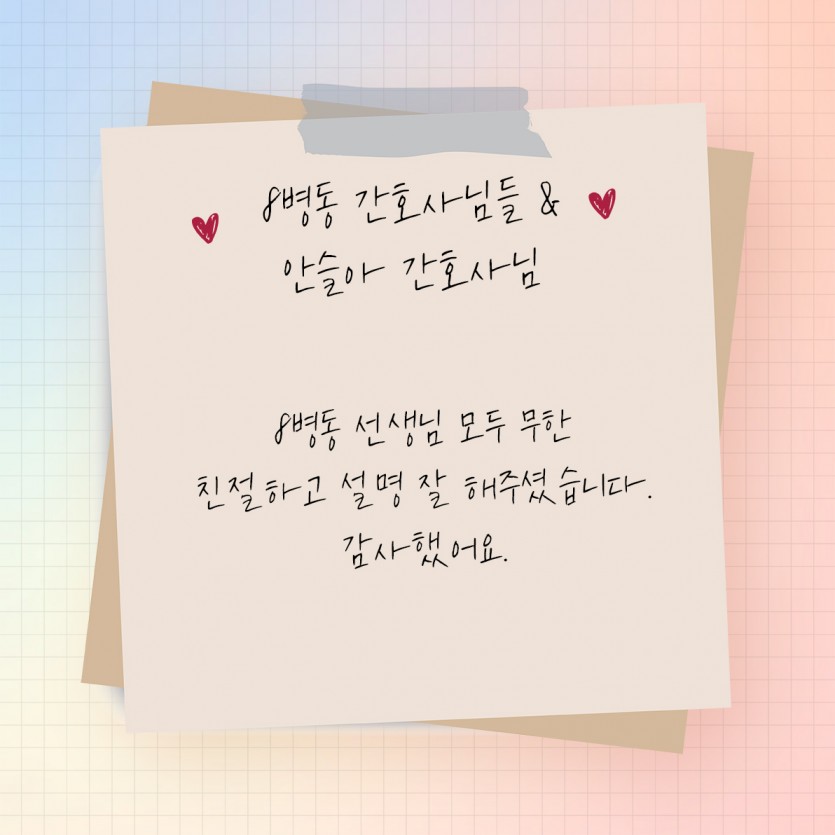 8병동 간호사님들 &
안슬아 간호사님
8병동 선생님 모두 무한
친절하고 설명 잘 해주셨습니다.
감사했어요.